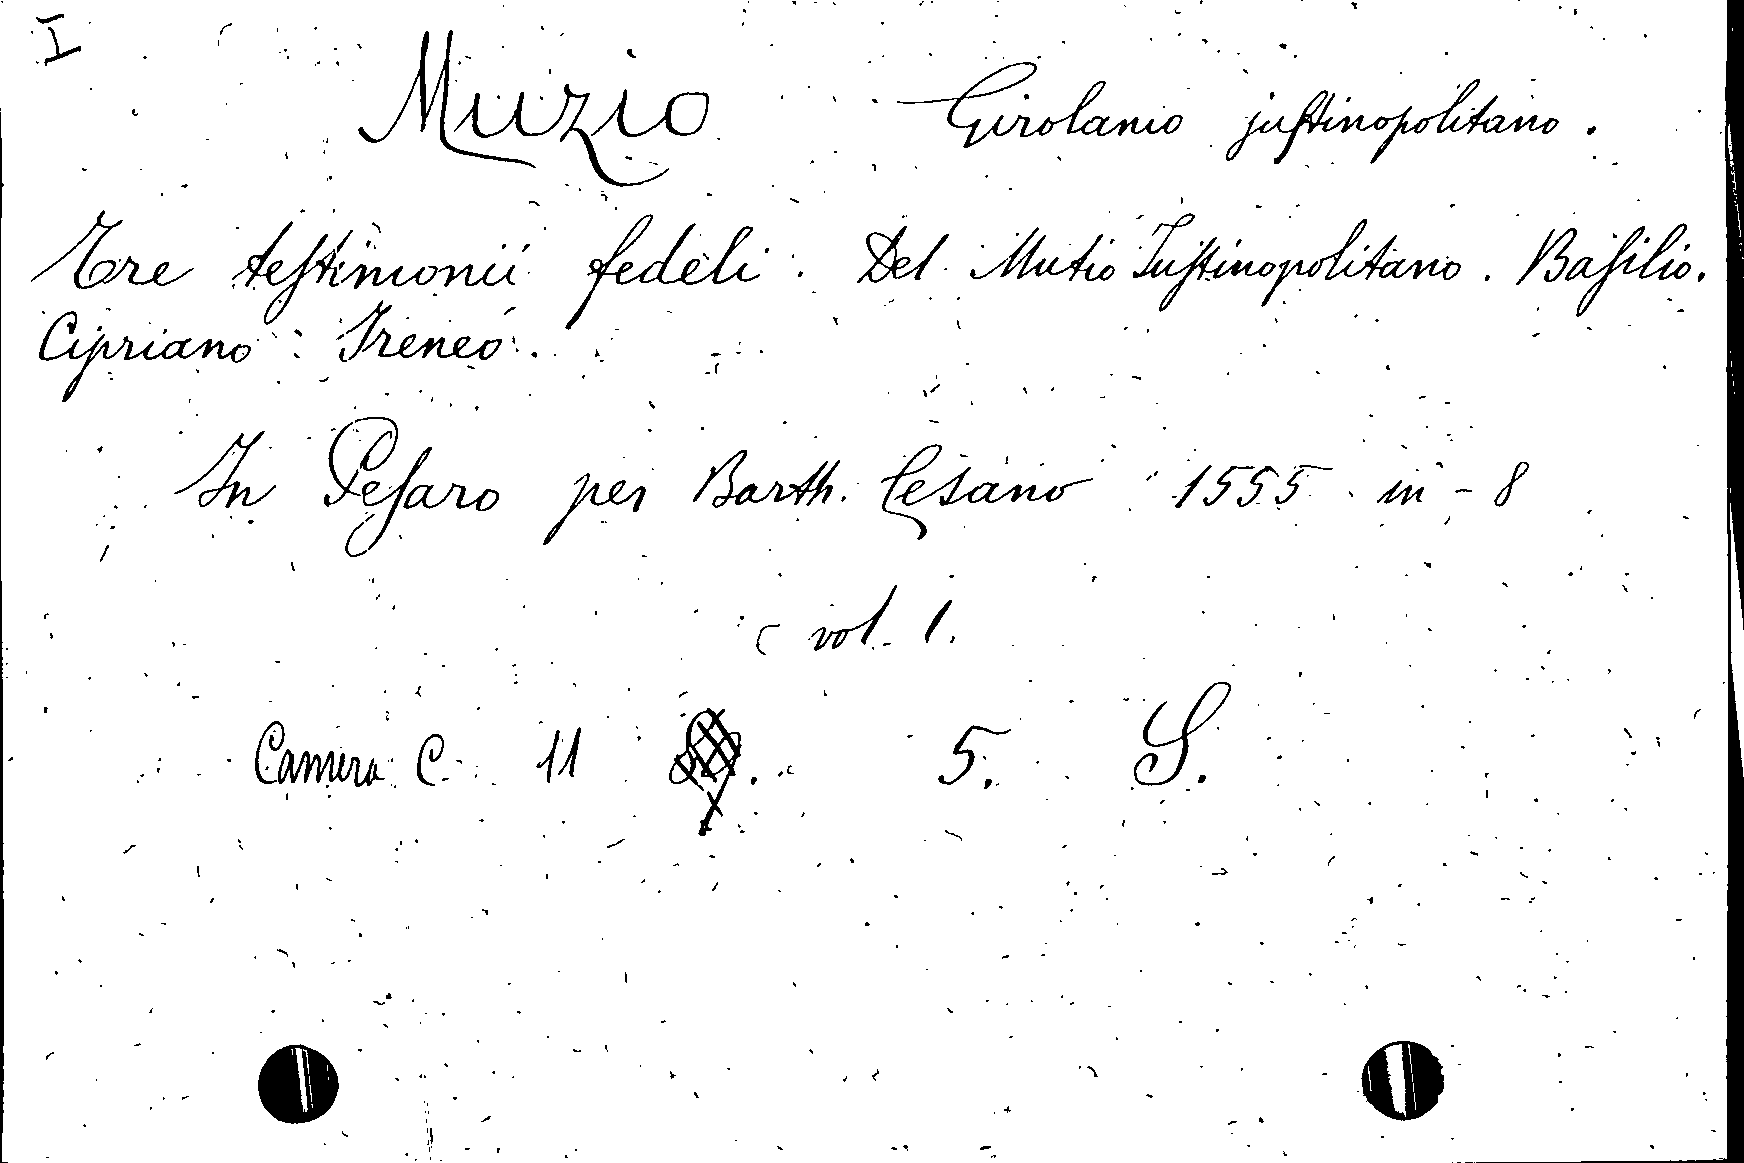 I
Muzio Girolamo juſtinopolitano.
Tre teſtimonii fedeli. Del Mutio Juſtinopolitano. Baſilio.
Cipriano. Ireneo.
In Peſaro per Barth. Cesano 1555 in-8
vol. 1.
Camera C. 11 5. S.